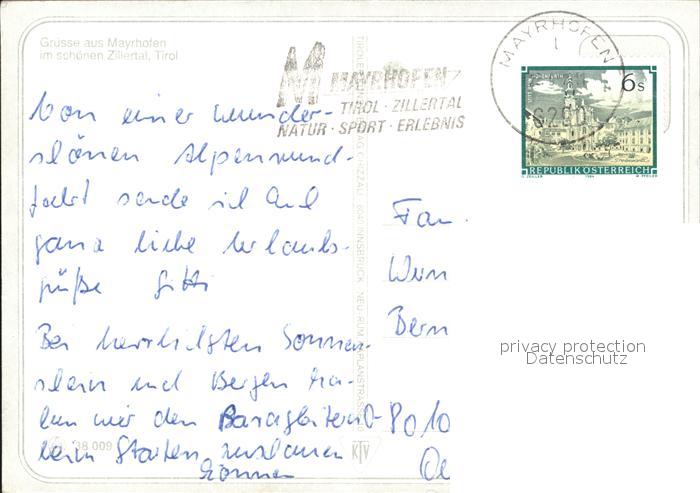 Grüsse aus Mayrhofen
im schönen Zillertal, Tirol
MAYRHOFEN
TIROL · ZILLERTAL
NATUR · SPORT · ERLEBNIS
MAYRHOFEN
6290
6 s
REPUBLIK ÖSTERREICH
Von einer wunder-
schönen Alpenrund-
fahrt sende ich Euch
ganz liebe Urlaubs-
grüße Gitti
Bei herrlichsten Sonnen-
schein und Bergen ha-
ben wir den
beim Starten zuschauen
können
Fam.
Wern
Bern
D-8010
38 009
KTV
privacy protection
Datenschutz